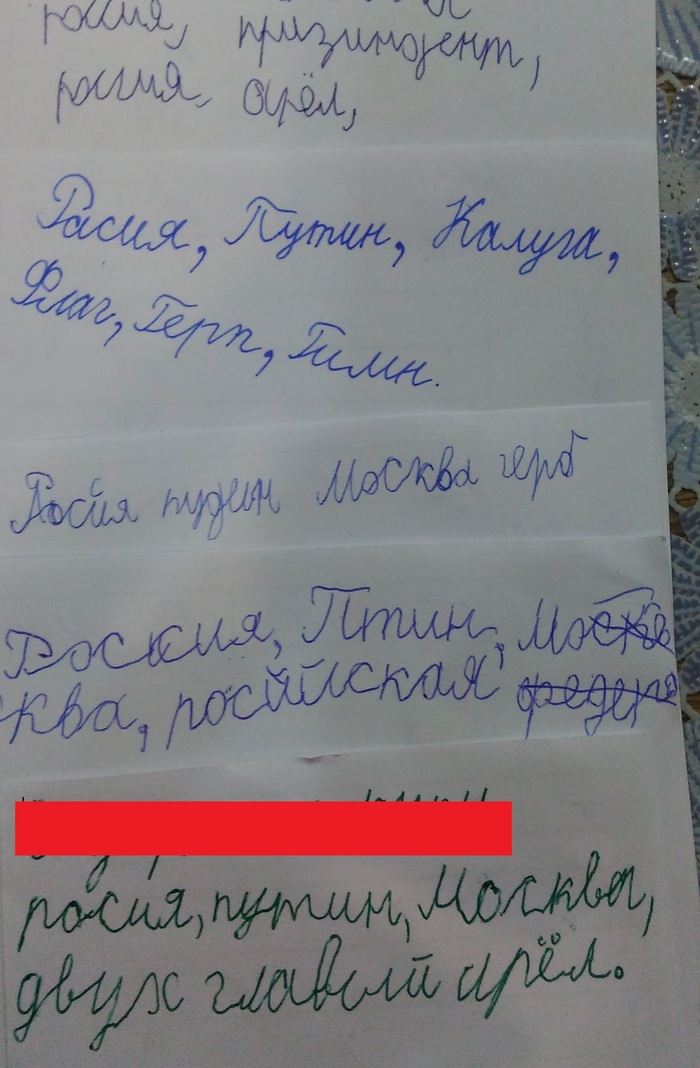 россия, призиндент,
росия, орёл,
Расия, Путин, Калуга,
Флаг, Герп, Гимн.
Росия пудин Москва герб
Россия, Птин, Мо
ква, росийская
росия, путин, Москва,
двух главый арёл.